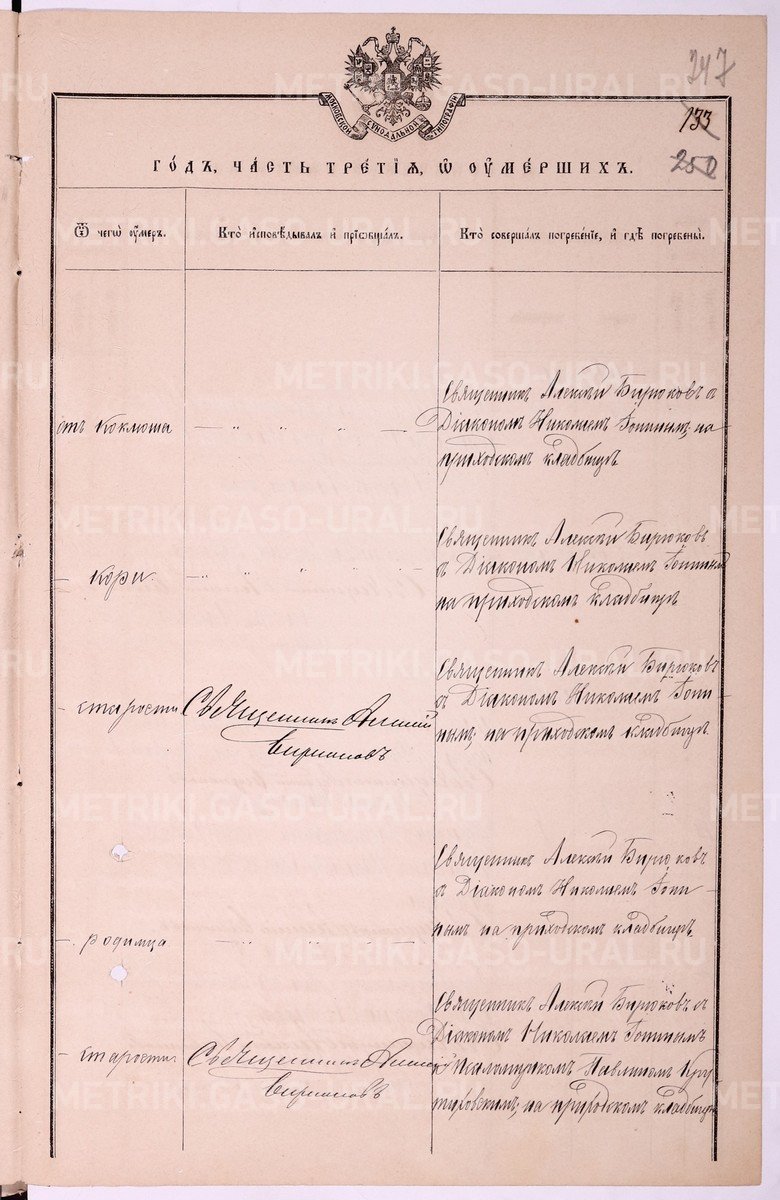 247
133
250
МОСКОВСКОЙ СѴНОДАЛЬНОЙ ТИПОГРАФІИ
ГОДЪ, ЧАСТЬ ТРЕТІЯ, Ѡ ОУМЕРШИХЪ.
Ѿ чегѡ оумеръ.
Кто исповѣдывалъ и пріѡбщалъ.
Кто совершалъ погребеніе, и гдѣ погребены.
отъ коклюша
Священникъ Алексѣй Бирюковъ с
Діакономъ Николаемъ Топинымъ, на
приходскомъ кладбищѣ
— кори
Священникъ Алексѣй Бирюковъ
съ Діакономъ Николаемъ Топинымъ
на приходскомъ кладбищѣ
— старости
Священникъ Алексій
Бирюковъ
Священникъ Алексѣй Бирюковъ
съ Діакономъ Николаемъ Топи-
нымъ, на приходскомъ кладбищѣ
— родимца
Священникъ Алексѣй Бирюковъ
съ Діакономъ Николаемъ Топи-
нымъ на приходскомъ кладбищѣ
— старости
Священникъ Алексій
Бирюковъ
Священникъ Алексѣй Бирюковъ с
Діакономъ Николаемъ Топинымъ
и Псаломщикомъ Павлиномъ
на приходскомъ кладбищѣ
METRIKI.GASO-URAL.RU